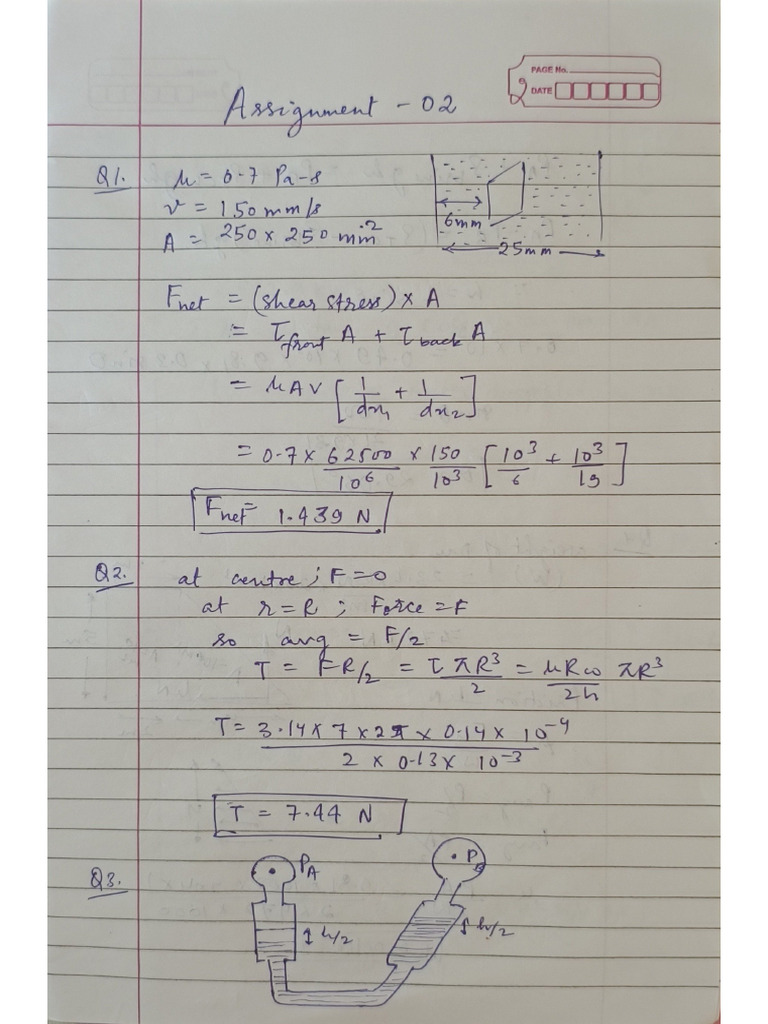 PAGE No.
DATE
Assignment - 02
Q1. μ = 0.7 Pa-s
v = 150 mm/s
A = 250 × 250 mm²
6mm
25mm
Fnet = (shear stress) × A
= τfront A + τback A
= μAV [1/dx₁ + 1/dx₂]
= 0.7 × 62500/10⁶ × 150/10³ [10³/6 + 10³/19]
Fnet = 1.439 N
Q2. at centre ; F = 0
at r = R ; Force = F
so avg = F/2
T = FR/2 = τπR³/2 = μRω/2h πR³
T = 3.14 × 7 × 25 × 0.14 × 10⁻⁴ / 2 × 0.13 × 10⁻³
T = 7.44 N
Q3. PA
PB
h/2
h/2